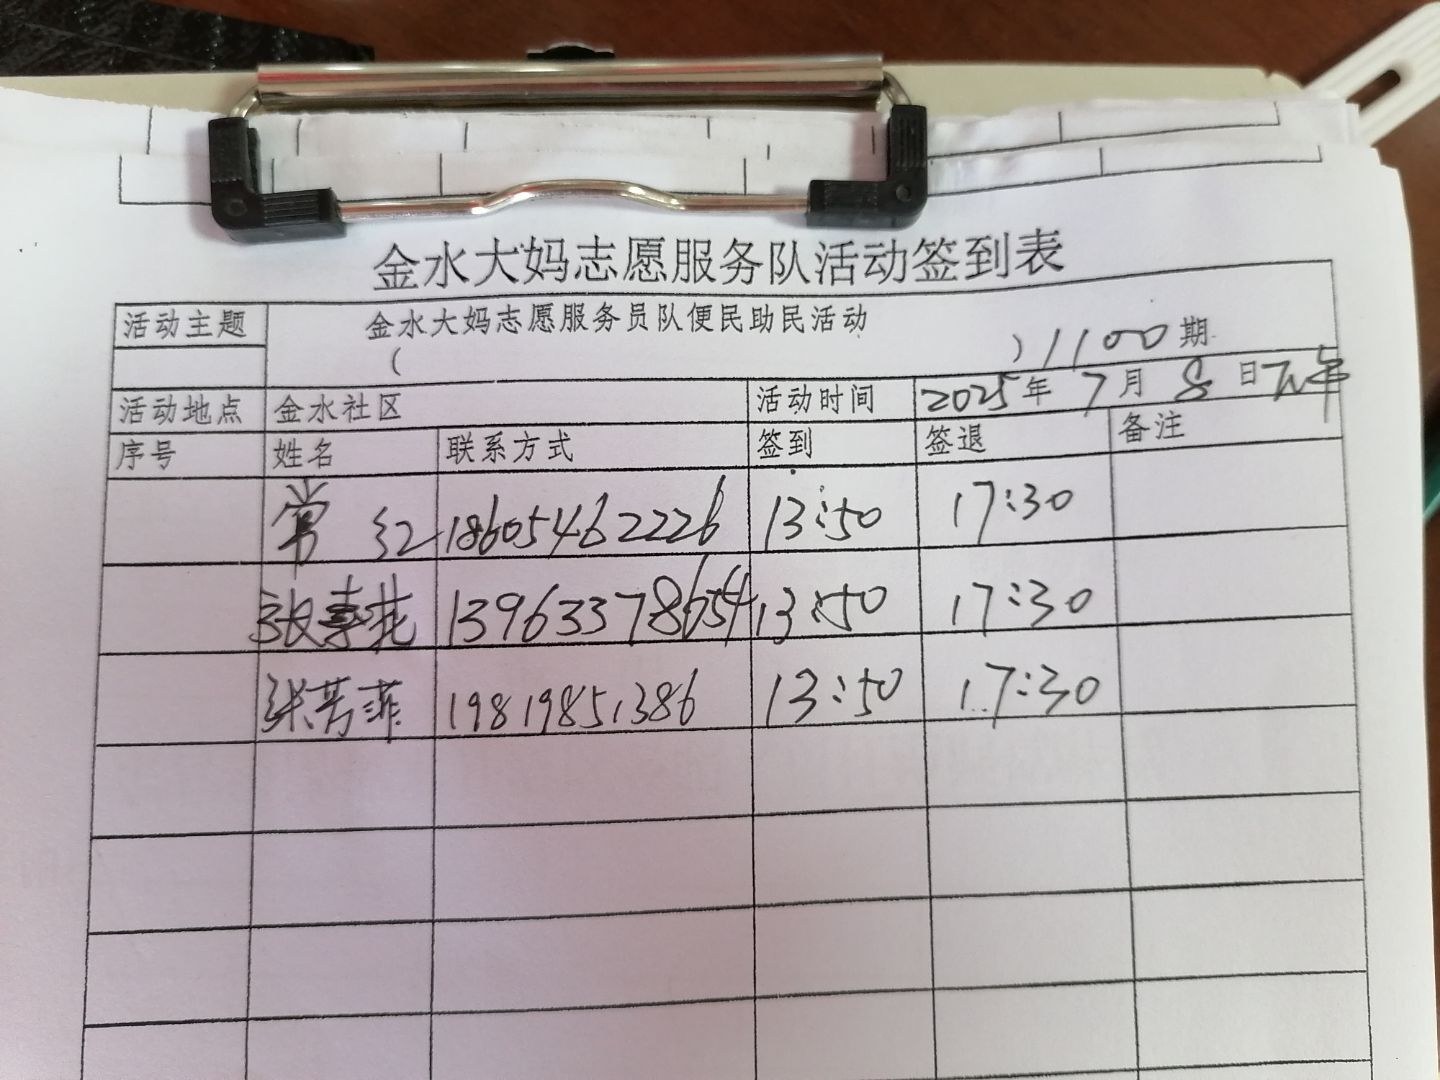 金水大妈志愿服务队活动签到表
活动主题 金水大妈志愿服务员队便民助民活动
( ) 1100期
活动地点 金水社区 活动时间 2025年7月8日下午
序号 姓名 联系方式 签到 签退 备注
常红 18605462226 13:50 17:30
张素花 13963378654 13:50 17:30
张芳菲 19819851386 13:50 17:30